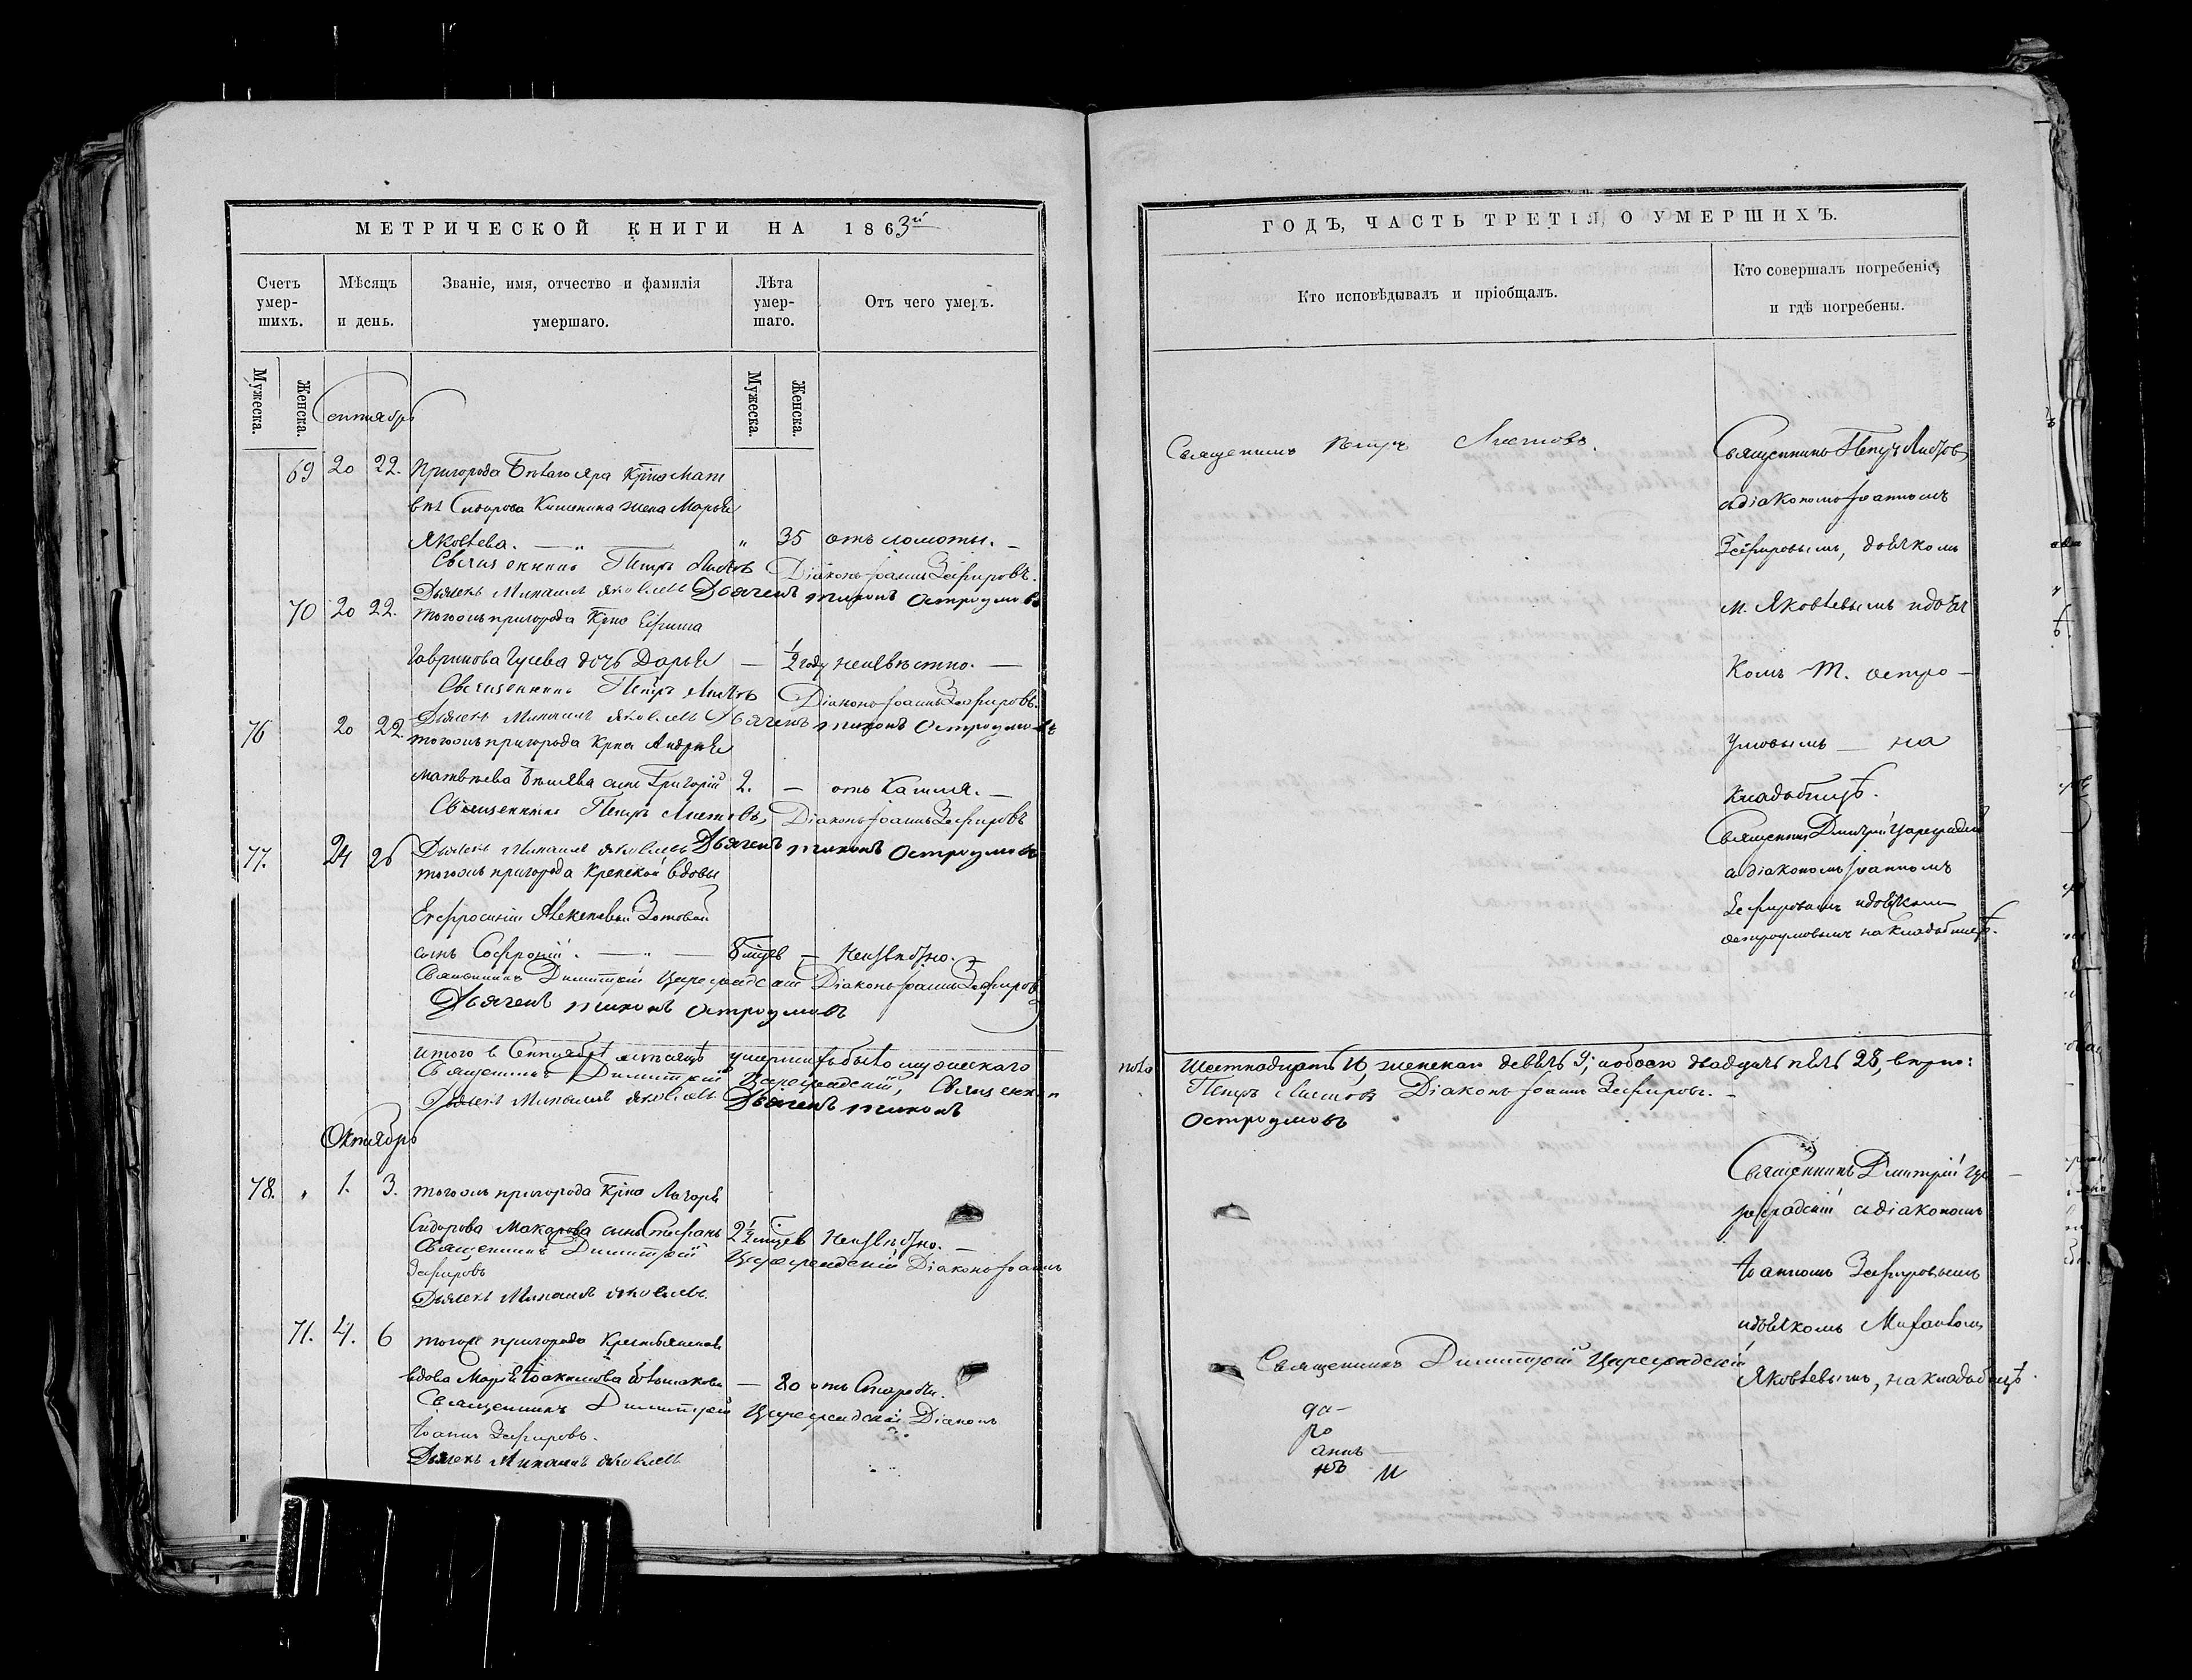 МЕТРИЧЕСКОЙ КНИГИ НА 1863й
Счетъ умер-шихъ.
Мѣсяцъ и день.
Званіе, имя, отчество и фамилія умершаго.
Лѣта умер-шаго.
Отъ чего умеръ.
Мужеска.
Женска.
Мужеска.
Женска.
Сентябрь
69 20 22. Пригорода Бѣлаго яра Крна Мат
вѣя Сидорова жена Марья
Яковлева. — „ — „ 35 отъ ломоты. —
Священникъ Петръ Листовъ Діаконъ Іоаннъ Зефировъ.
Дьячекъ Михаилъ Яковлевъ Дьячекъ Тихонъ Остроумовъ
70 20 22. тогожъ пригорода Крна Ефима
Гаврилова Гусева дочь Дарья — ½ году неизвѣстно. —
Священникъ Петръ Листовъ Діаконъ Іоаннъ Зефировъ.
Дьячекъ Михаилъ Яковлевъ Дьячекъ Тихонъ Остроумовъ
76 20 22. тогожъ пригорода Крна Андрея
Матвѣева Бѣляева сынъ Григорій 2. — отъ Кашля. —
Священникъ Петръ Листовъ, Діаконъ Іоаннъ Зефировъ
Дьячекъ Михаилъ Яковлевъ Дьячекъ Тихонъ Остроумовъ
77. 24 26 тогожъ пригорода Крнской вдовы
Евфросиніи Алексѣевой Зотовой
сынъ Софроній. — „ — 8 мцев — Неизвѣстно. —
Священникъ Димитрій Цареградскій Діаконъ Іоаннъ Зефировъ
Дьячекъ Тихонъ Остроумовъ
Итого в Сентябрѣ мѣсяцѣ умершихъ было мужескаго
Священникъ Димитрій Цареградскій, Священник
Дьячекъ Михаилъ Яковлевъ Дьячекъ Тихонъ
Октябрь
78. „ 1. 3. тогожъ пригорода Крна Лазаря
Сидорова Макарова сынъ Стефанъ 2½ мцев Неизвѣстно. —
Священникъ Димитрій Цареградскій Діаконъ Іоаннъ
Зефировъ
Дьячекъ Михаилъ Яковлевъ.
71. 4. 6 тогожъ пригорода Крестьянская
вдова Марія Іоакимова — 80 отъ Старости.
Священникъ Димитрій Цареградскій Діаконъ
Іоаннъ Зефировъ.
Дьячекъ Михаилъ Яковлевъ
ГОДЪ, ЧАСТЬ ТРЕТІЯ, О УМЕРШИХЪ.
Кто исповѣдывалъ и пріобщалъ.
Кто совершалъ погребеніе,
и гдѣ погребены.
Священникъ Петръ Листовъ.
Священникъ Петръ Листовъ
съ діакономъ Іоанномъ
Зефировымъ, дьячкомъ
М. Яковлевымъ и дьяч
комъ Т. Остро-
умовымъ — на
Кладбищѣ.
Священникъ Димитрій Цареградскій
съ діакономъ Іоанномъ
Зефировымъ и дьячкомъ
Остроумовымъ на Кладбищѣ.
пола Шестнадцать 16, женскаго девять 9; обоего двадцать пять 25,
Петръ Листовъ Діаконъ Іоаннъ Зефировъ. —
Остроумовъ
Священникъ Димитрій Ца—
реградскій съ діакономъ
Іоанномъ Зефировымъ
и дьячкомъ Михаиломъ
Яковлевымъ, на кладбищѣ.
Священникъ Димитрій Цареградскій
да—
ро
аннъ